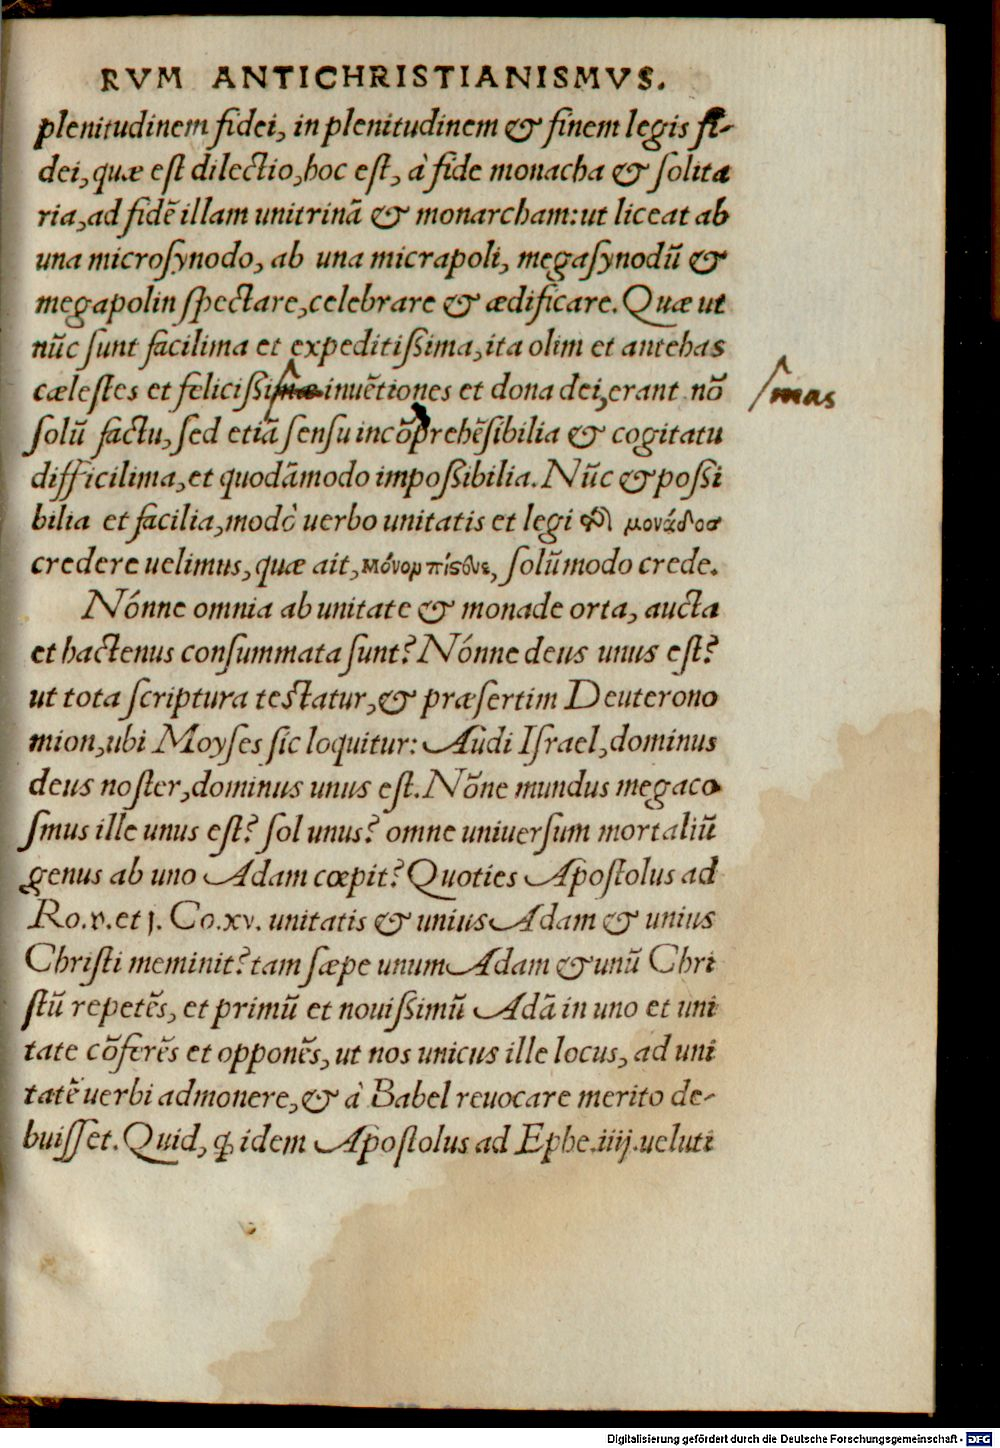 RVM ANTICHRISTIANISMVS.
plenitudinem fidei, in plenitudinem & finem legis fi-
dei, quæ eſt dilectio, hoc eſt, à fide monacha & ſolita
ria, ad fidẽ illam unitrinã & monarcham: ut liceat ab
una microſynodo, ab una micrapoli, megaſynodũ &
megapolin ſpectare, celebrare & ædificare. Quæ ut
nũc ſunt facilima et expeditiſſima, ita olim et antehas
cæleſtes et feliciſſimæ inuẽtiones et dona dei, erant nõ
mas
ſolũ factu, ſed etiã ſenſu incõprehẽſibilia & cogitatu
difficilima, et quodãmodo impoſſibilia. Nũc & poſſi
bilia et facilia, modò uerbo unitatis et legi μονάδος
credere uelimus, quæ ait, ſolũmodo crede.
Nónne omnia ab unitate & monade orta, aucta
et hactenus conſummata ſunt? Nónne deus unus eſt?
ut tota ſcriptura teſtatur, & præſertim Deuterono
mion, ubi Moyſes ſic loquitur: Audi Iſrael, dominus
deus noſter, dominus unus eſt. Nõne mundus megaco
ſmus ille unus eſt? ſol unus? omne uniuerſum mortaliũ
genus ab uno Adam cœpit? Quoties Apoſtolus ad
Ro.v. et j. Co.xv. unitatis & unius Adam & unius
Chriſti meminit? tam ſæpe unum Adam & unũ Chri
ſtũ repetẽs, et primũ et nouiſſimũ Adã in uno et uni
tate cõferẽs et opponẽs, ut nos unicus ille locus, ad uni
tatẽ uerbi admonere, & à Babel reuocare merito de-
buiſſet. Quid, ꝙ idem Apoſtolus ad Ephe.iiij. ueluti
Digitalisierung gefördert durch die Deutsche Forschungsgemeinschaft - DFG